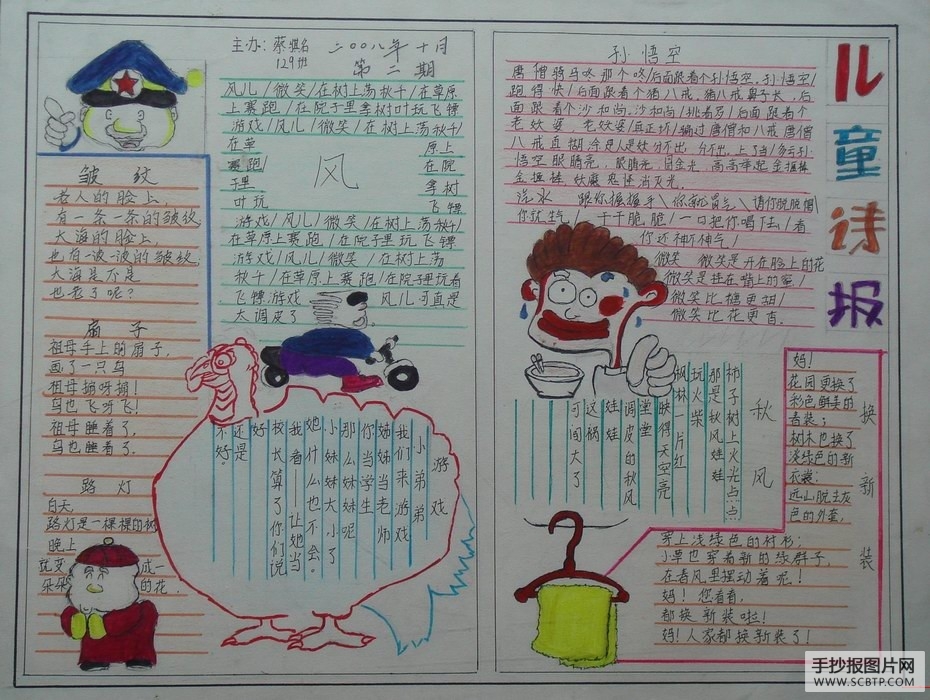 主办:蔡骐名 二〇〇八年十月
129班
第二期
风儿/微笑/在树上荡秋千/在草原
上赛跑/在院子里拿树叶玩飞镖
游戏/风儿/微笑/在树上荡秋千/
在草 原上
赛跑/ 在院
子里 拿树
叶玩 飞镖
风
游戏/风儿/微笑/在树上荡秋千/
在草原上赛跑/在院子里玩飞镖
游戏/风儿/微笑/在树上荡
秋千/在草原上赛跑/在院子里玩着
飞镖游戏 风儿可真是
太调皮了
皱纹
老人的脸上,
有一条一条的皱纹
大海的脸上,
也有一波一波的皱纹
大海是不是
也老了呢?
扇子
祖母手上的扇子,
画了一只鸟
祖母扇呀扇!
鸟也飞呀飞!
祖母睡着了,
鸟也睡着了.
路灯
白天
路灯是一棵棵的树
晚上
成一
朵朵 的花.
游戏
小弟弟
我们来游戏
姊姊当老师
你当学生
那么妹妹呢
小妹妹太小了
她什么也不会
我看——让她当
校长算了你们说
好
还是
不好?
孙悟空
唐僧骑马咚那个咚/后面跟着个孙悟空.孙悟空/
跑得快/后面跟着个猪八戒.猪八戒鼻子长,后
面跟着个沙和尚,沙和尚/挑着箩/后面跟着个
老妖婆,老妖婆/真正坏/骗过唐僧和八戒唐僧
八戒真糊涂是人是妖分不出,分不出,上了当/多亏孙
悟空眼睛亮,眼睛亮,冒金光,高高举起金箍棒
金箍棒,妖魔鬼怪消灭光.
汽水 跟你握握手\你就冒气\请你脱脱帽\
你就生气/ 干干脆脆/一口把你喝下去/看
你还神不神气/
微笑 微笑是开在脸上的花
微笑是挂在嘴上的蜜/
微笑比糖更甜/
微笑比花更香.
儿童诗报
秋风
柿子树上火光点点
那是秋风娃娃
玩火柴
枫林一片红
映得天空亮
堂堂
调皮的秋风
娃娃
这祸
可闯大了
换新装
妈!
花园更换了
彩色鲜美的
春装;
树木也换了
淡绿色的新
衣裳;
远山脱去灰
色的外套,
穿上浅绿色的衬衫;
小草也穿着新的绿群子
在春风里摆动着呢!
妈!您看看,
都换新装啦!
妈!人家都换新装了!
手抄报图片网
WWW.SCBTP.COM